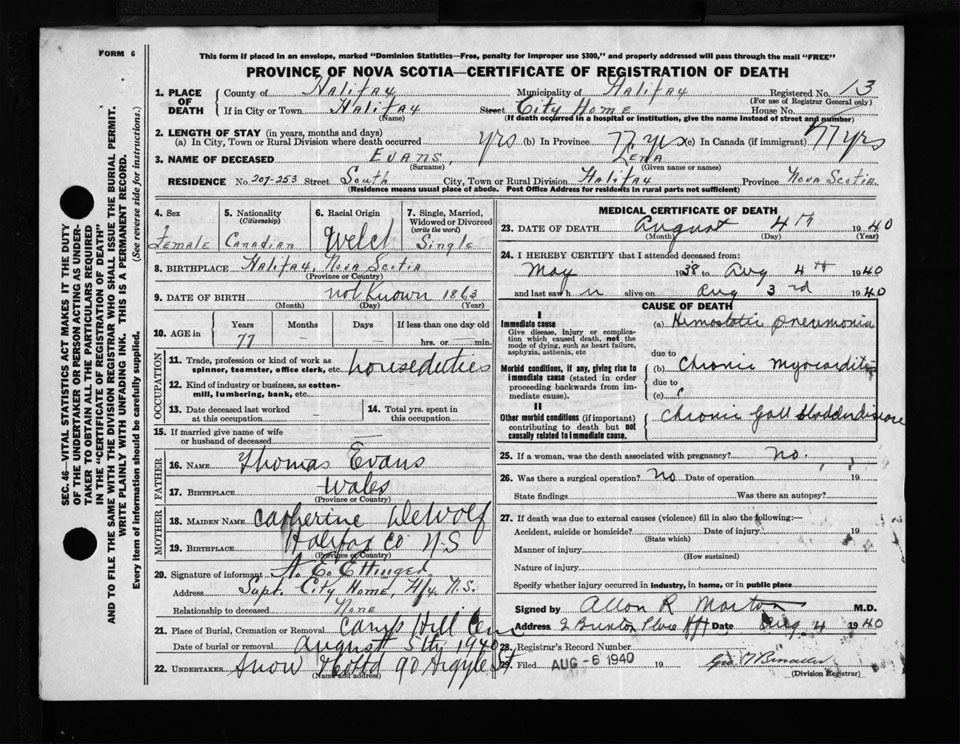 FORM 6
This form if placed in an envelope, marked "Dominion Statistics—Free, penalty for improper use $300," and properly addressed will pass through the mail "FREE"
PROVINCE OF NOVA SCOTIA—CERTIFICATE OF REGISTRATION OF DEATH
1. PLACE OF DEATH County of Halifax Municipality of Halifax Registered No. 13
(For use of Registrar General only)
If in City or Town Halifax Street City Home House No.
(Name) (If death occurred in a hospital or institution, give the name instead of street and number)
2. LENGTH OF STAY (in years, months and days)
(a) In City, Town or Rural Division where death occurred yrs (b) In Province 77 yrs (c) In Canada (if immigrant) 77 yrs
3. NAME OF DECEASED Evans, Lena
(Surname) (Given name or names)
RESIDENCE No. 207-253 Street South City, Town or Rural Division Halifax Province Nova Scotia
(Residence means usual place of abode. Post Office Address for residents in rural parts not sufficient)
4. Sex Female
5. Nationality (Citizenship) Canadian
6. Racial Origin Welch
7. Single, Married, Widowed or Divorced (write the word) Single
8. BIRTHPLACE Halifax, Nova Scotia
(Province or Country)
9. DATE OF BIRTH not Known 1863
(Month) (Day) (Year)
10. AGE in Years 77 Months – Days – If less than one day old hrs. or min.
OCCUPATION
11. Trade, profession or kind of work as spinner, teamster, office clerk, etc. houseduties
12. Kind of industry or business, as cotton-mill, lumbering, bank, etc.
13. Date deceased last worked at this occupation –
14. Total yrs. spent in this occupation –
15. If married give name of wife or husband of deceased –
FATHER
16. NAME Thomas Evans
17. BIRTHPLACE Wales
(Province or Country)
MOTHER
18. MAIDEN NAME Catherine DeWolf
19. BIRTHPLACE Halifax Co N S
(Province or Country)
20. Signature of informant A. E. Ettinger
Address Supt. City Home, Hfx N.S.
Relationship to deceased None
21. Place of Burial, Cremation or Removal Camp Hill Cem
Date of burial or removal August 5th 1940
22. UNDERTAKER Snow & Co Ltd 90 Argyle St
(Name and address)
MEDICAL CERTIFICATE OF DEATH
23. DATE OF DEATH August 4th 1940
(Month) (Day) (Year)
24. I HEREBY CERTIFY that I attended deceased from:
May 1938 to Aug 4th 1940
and last saw h r alive on Aug 3rd 1940
CAUSE OF DEATH
I
Immediate cause
Give disease, injury or complication which caused death, not the mode of dying, such as heart failure, asphyxia, asthenia, etc
(a) Hemostatic pneumonia
due to
Morbid conditions, if any, giving rise to immediate cause (stated in order proceeding backwards from immediate cause).
(b) Chronic Myocarditis
due to
(c)
II
Other morbid conditions (if important) contributing to death but not causally related to immediate cause.
Chronic Gall bladder disease
25. If a woman, was the death associated with pregnancy? no.
26. Was there a surgical operation? No Date of operation 19
State findings Was there an autopsy?
27. If death was due to external causes (violence) fill in also the following:—
Accident, suicide or homicide? Date of injury 19
(State which)
Manner of injury
(How sustained)
Nature of injury
Specify whether injury occurred in industry, in home, or in public place
Signed by Allan R Morton M.D.
Address Date Aug. 4 1940
28. Registrar's Record Number
29. Filed AUG - 6 1940 19
(Division Registrar)
SEC. 46—VITAL STATISTICS ACT MAKES IT THE DUTY
OF THE UNDERTAKER OR PERSON ACTING AS UNDER-
TAKER TO OBTAIN ALL THE PARTICULARS REQUIRED
IN THE "CERTIFICATE OF REGISTRATION OF DEATH"
AND TO FILE THE SAME WITH THE DIVISION REGISTRAR WHO SHALL ISSUE THE BURIAL PERMIT.
WRITE PLAINLY WITH UNFADING INK. THIS IS A PERMANENT RECORD.
Every item of information should be carefully supplied. (See reverse side for instructions.)